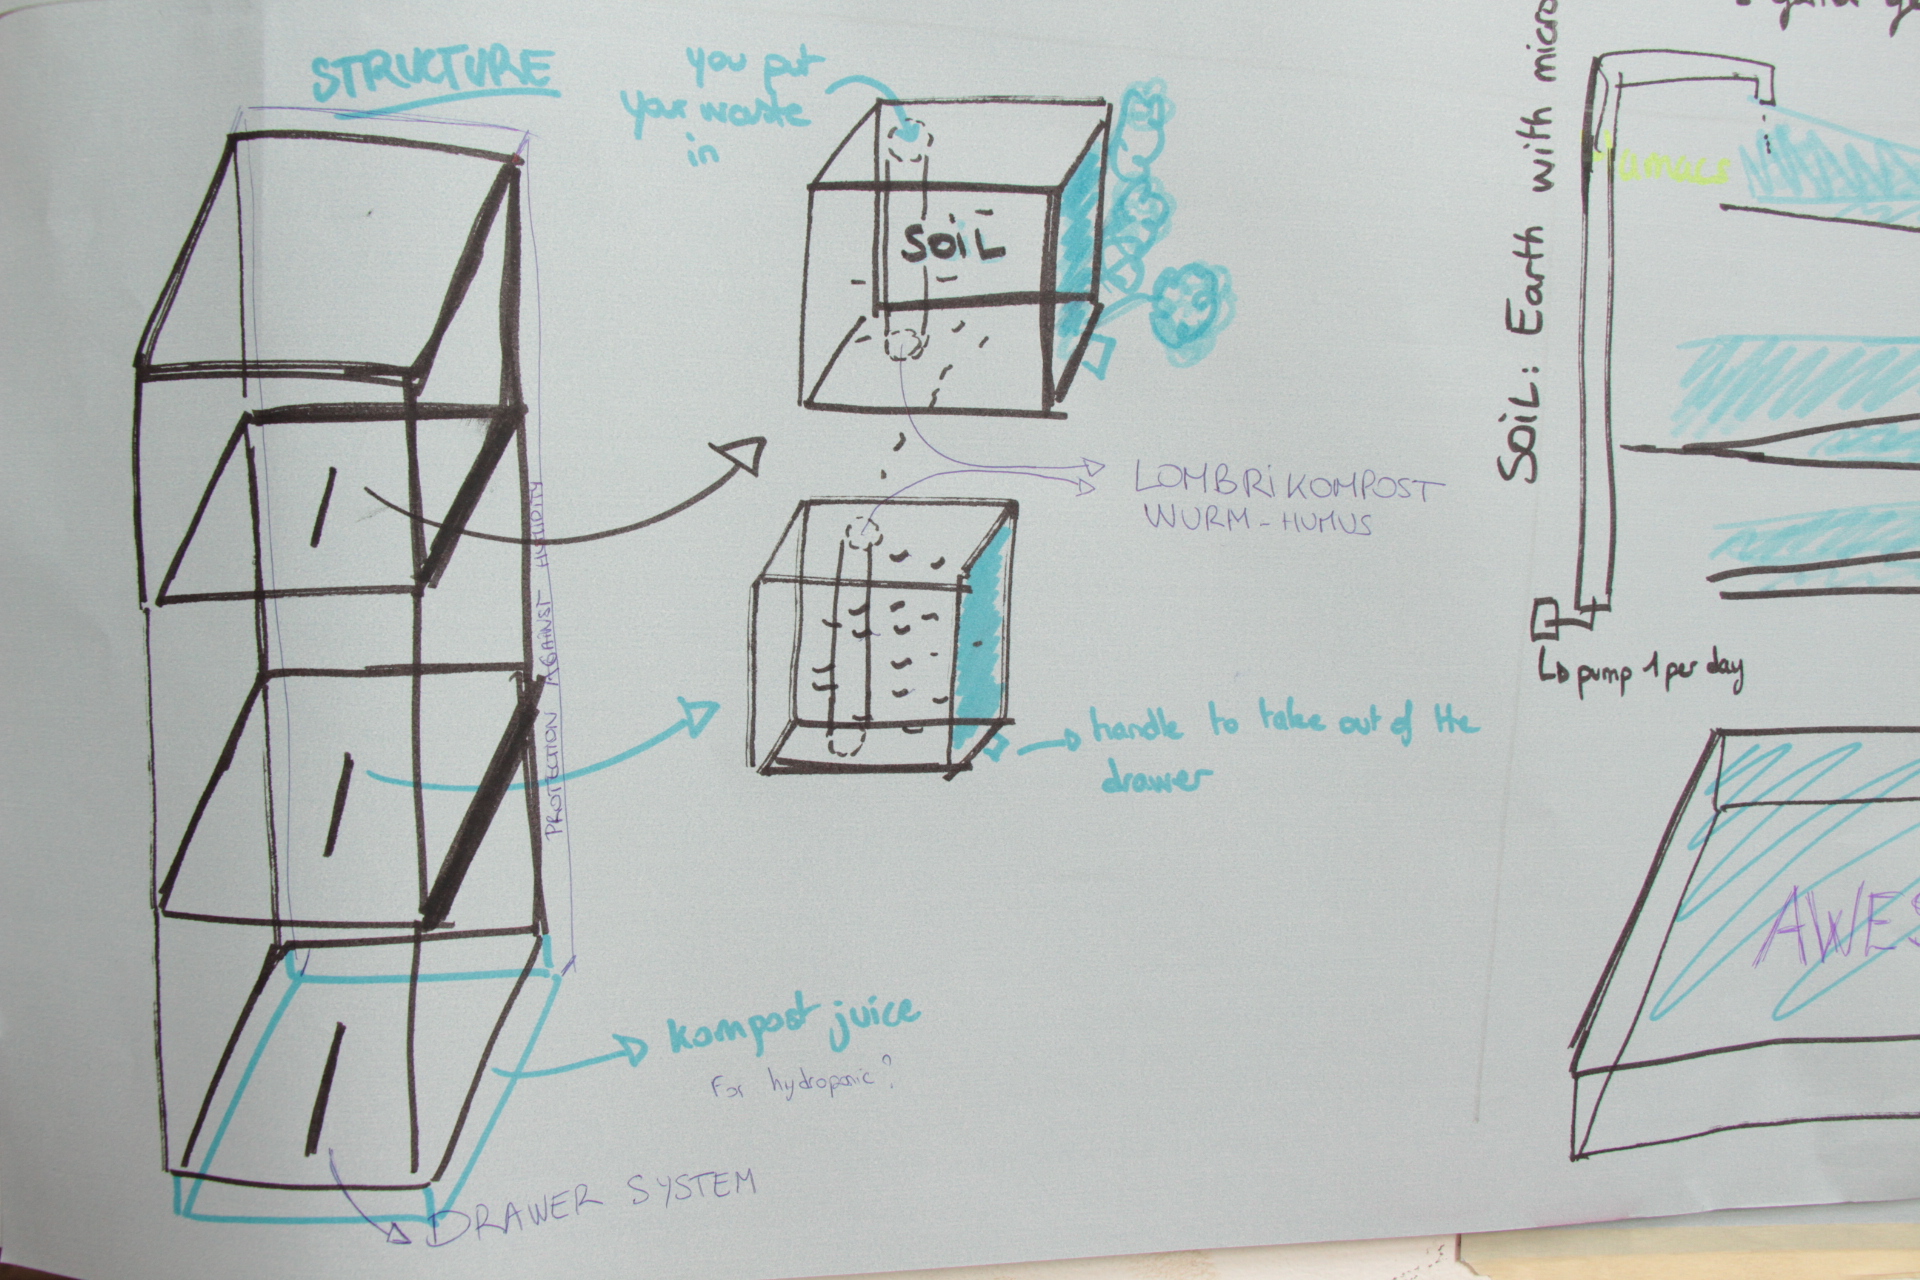 STRUCTURE
you put
your waste
in
SOIL
LOMBRIKOMPOST
WURM-HUMUS
PROTECTION AGAINST HUMIDITY
handle to take out of the
drawer
kompost juice
For hydroponic?
DRAWER SYSTEM
SOIL: Earth with micro
pump 1 per day
AWES